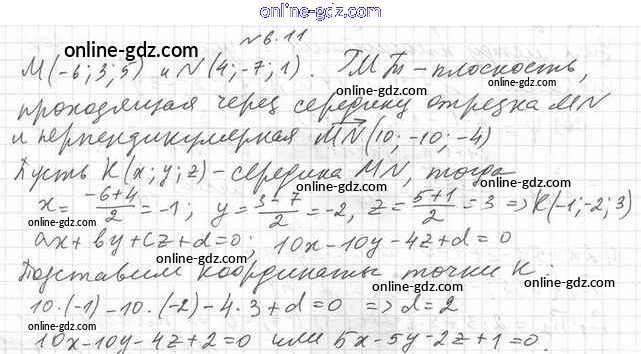 online-gdz.com
№6.11
online-gdz.com online-gdz.com
M(-6; 3; 5) и N(4; -7; 1). ГМТ - плоскость,
проходящая через середину отрезка MN
online-gdz.com online-gdz.com
и перпендикулярная MN(10; -10; -4)
online-gdz.com
Пусть K(x; y; z) - середина MN, тогда
online-gdz.com online-gdz.com
x = (-6+4)/2 = -1; y = (3-7)/2 = -2, z = (5+1)/2 = 3 => K(-1; -2; 3)
online-gdz.com online-gdz.com
ax + by + cz + d = 0; 10x - 10y - 4z + d = 0
online-gdz.com online-gdz.com
Подставим координаты точки K:
online-gdz.com
10·(-1) - 10·(-2) - 4·3 + d = 0 => d = 2
online-gdz.com online-gdz.com
10x - 10y - 4z + 2 = 0 или 5x - 5y - 2z + 1 = 0.
online-gdz.com